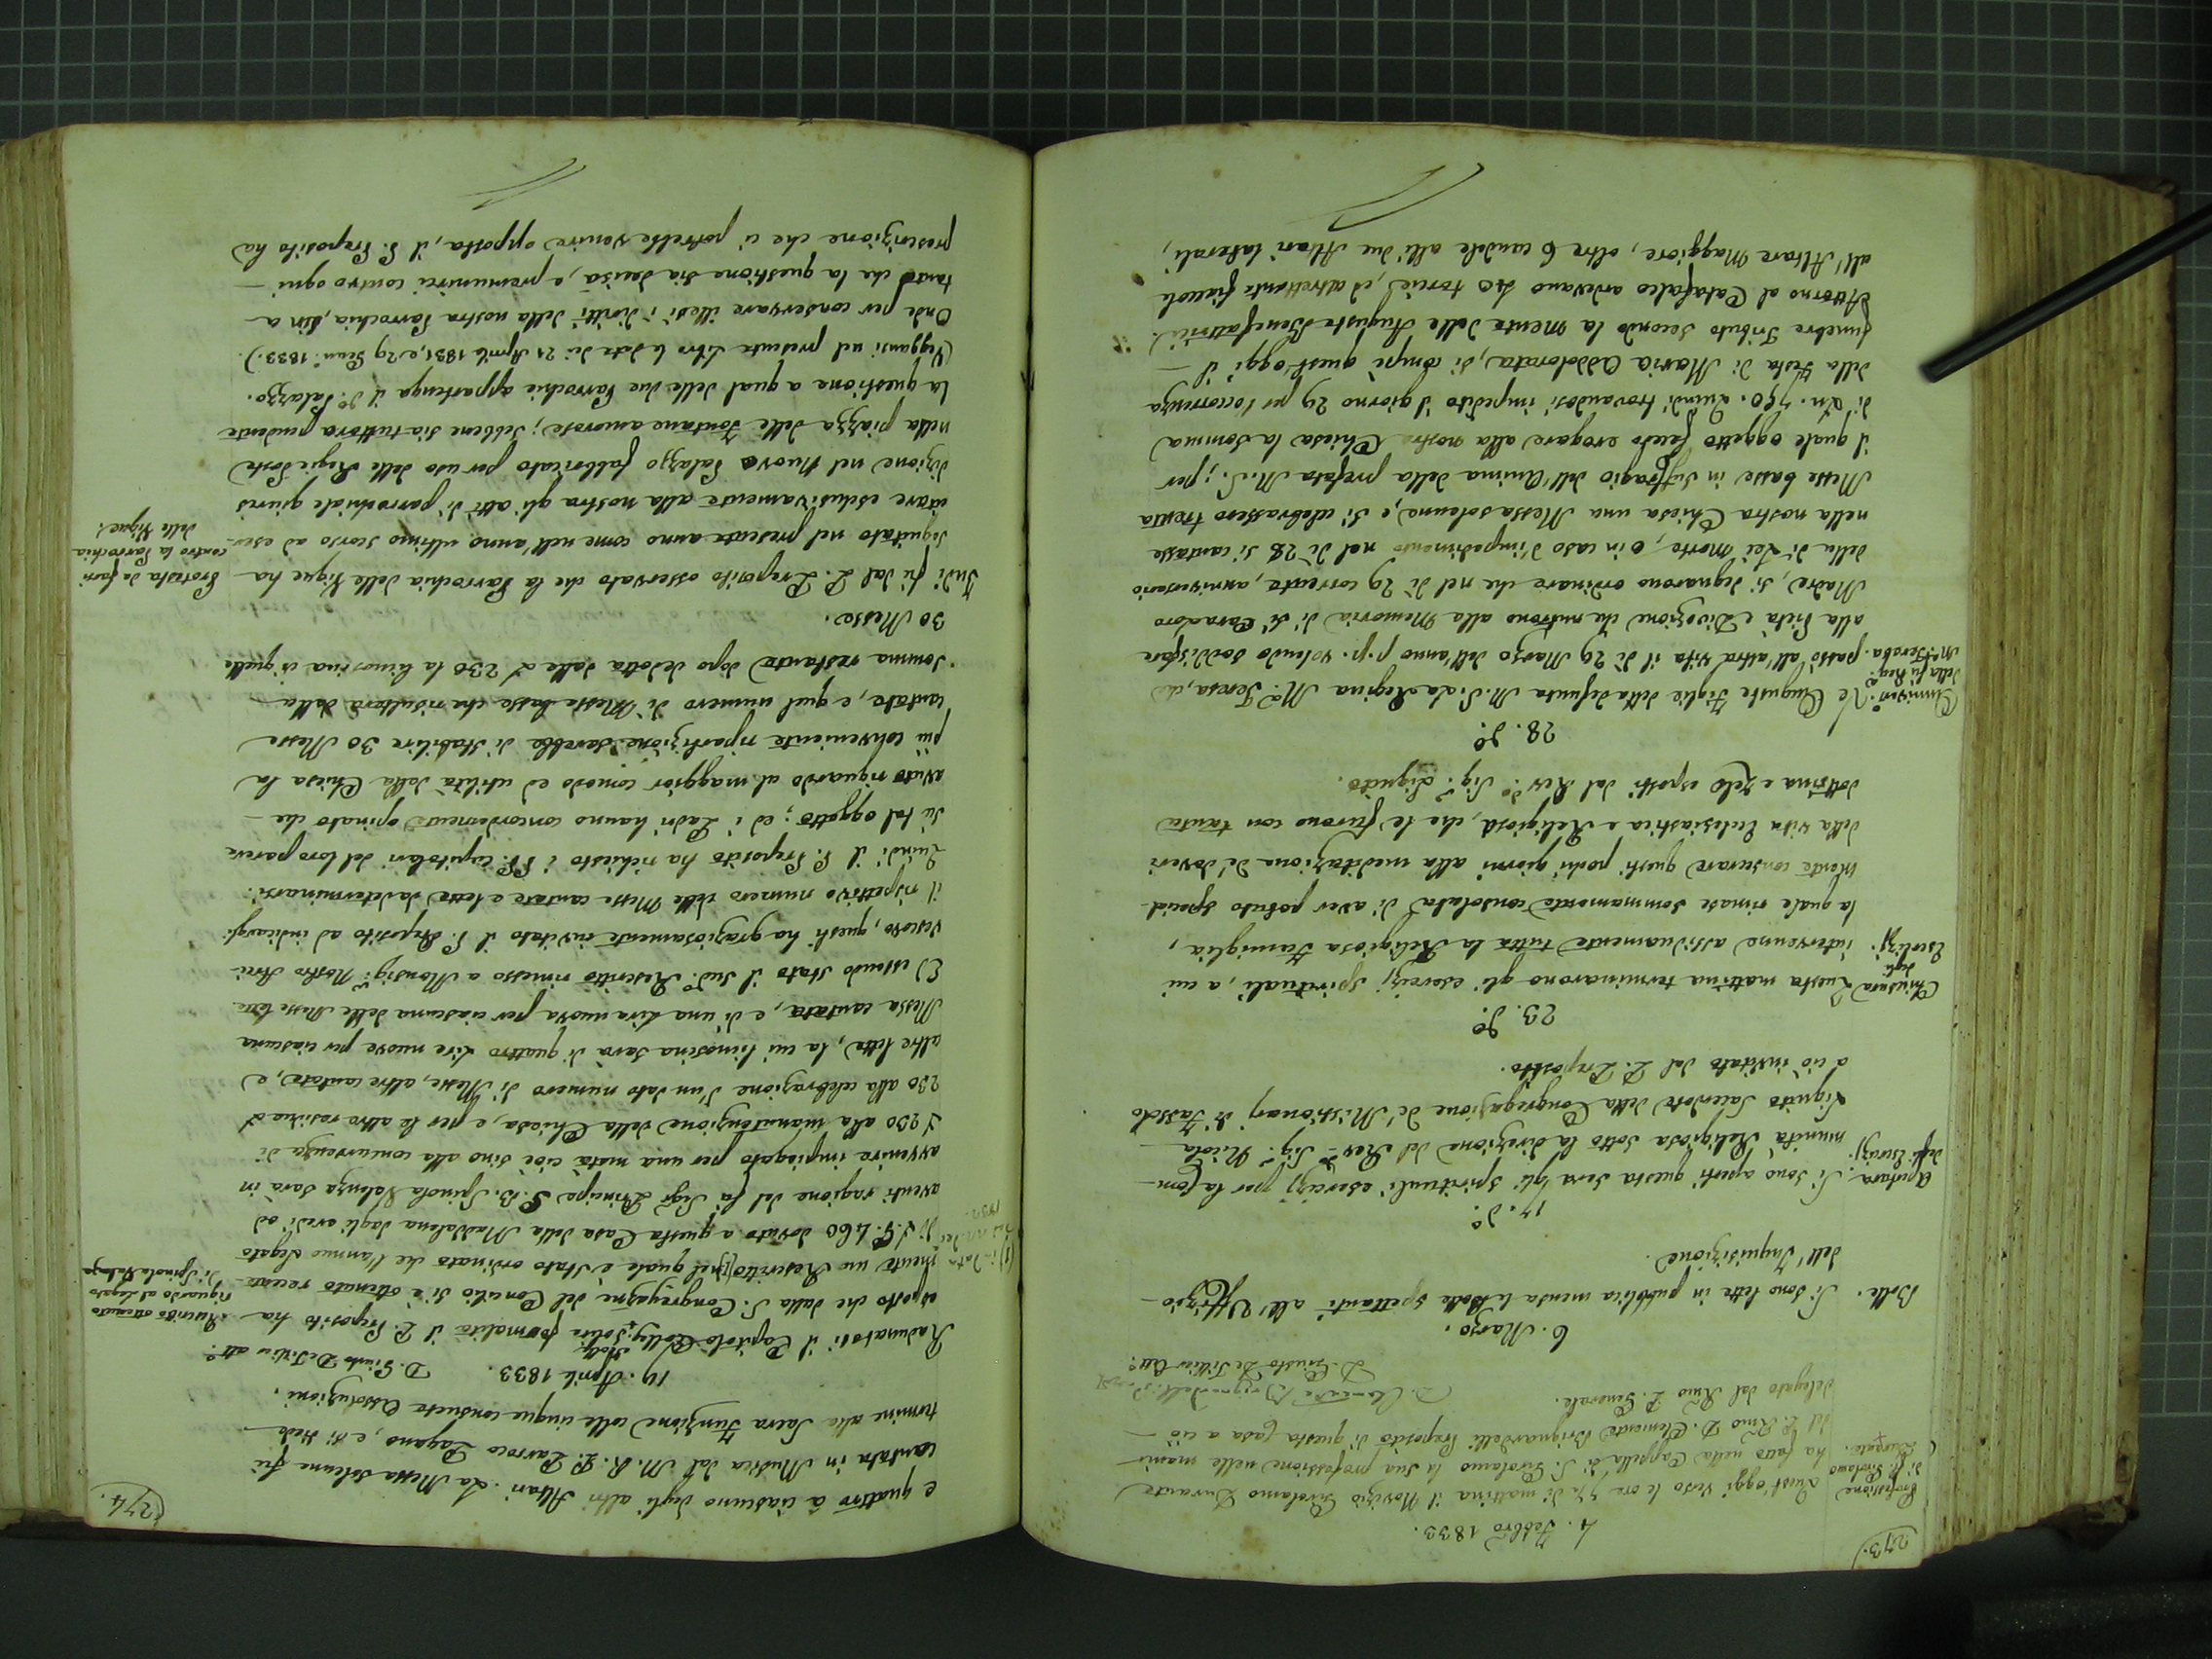 273.
4. Febbro 1833.
Professione di F. Girolamo Durante.
Quest'oggi verso le ore 7½ di mattina il Novizio Girolamo Durante
ha fatto nella Cappella di S. Girolamo la sua professione nelle mani
del P. Rmo D. Clemente Brignardelli Preposito di questa Casa a ciò
delegato dal Rmo P. Generale.
D. Clemente Brignardelli
D. Giusto De Tillier Att.o
6. Marzo.
Bolle. Si sono lette in pubblica mensa le Bolle spettanti all'Uffizio
dell'Inquisizione.
17. do.
Apertura degli Esercizj.
Si sono aperti questa sera gli spirituali esercizj per la Com-
munità Religiosa sotto la direzione del Revdo Sigr
Sacerdote della Congregazione de' Missionarj di Fassolo
a ciò invitato dal P. Preposito.
23. do.
Chiusura degli Esercizj.
Questa mattina terminarono gli esercizj spirituali, a cui
intervenne assiduamente tutta la Religiosa Famiglia,
la quale rimase sommamente consolata di aver potuto special-
mente consecrare questi pochi giorni alla meditazione de' doveri
della vita Ecclesiastica e Religiosa, che le furono con tanta
dottrina e zelo esposti dal Revdo Sigr
28. do.
Anniversro della fu Reg.a Ma Teresa.
Le Auguste Figlie della defunta M. S. la Regina Ma Teresa, che
passò all'altra vita il dì 29 Marzo dell'anno p.p. volendo soddisfare
alla Pietà e Divozione che nutrono alla Memoria di sì Cara loro
Madre, si degnarono ordinare che nel dì 29 corrente, anniversario
della di Lei morte, o in caso d'impedimento nel dì 28 si cantasse
nella nostra Chiesa una Messa solenne, e si celebrassero trenta
Messe basse in suffragio dell'Anima della prefata M. S.; per
il quale oggetto fecero erogare alla nostra Chiesa la somma
di Ln. 150. Quindi trovandosi impedito il giorno 29 per l'occorrenza
della Festa di Maria Addolorata, si compì quest'oggi il
funebre Tributo secondo la mente delle Auguste Benefattrici.
Attorno al Catafalco ardevano 40 torcie, ed altrettante fiaccole
all'Altare Maggiore, oltre 6 candele alli due Altari laterali,
274.
e quattro a ciascuno degli altri Altari. La Messa solenne fu
cantata in Musica dal M. R. P. Parroco Pagano, e si diede
termine alla Sacra Funzione colle cinque consuete Assoluzioni.
D. Giusto De Tillier att.o
19. Aprile 1833.
Rescritto ottenuto riguardo al legato di Spinola
Radunatosi il Capitolo Colleg. solita formalità il P. Preposito ha
esposto che dalla S. Congregazne del Concilio si è ottenuto recente-
mente un Rescritto (1) nel quale è stato ordinato che l'annuo Legato
di £. 460 dovuto a questa Casa della Maddalena dagli eredi od
aventi ragione del fu Sigr Principe G. B. Spinola Valenza sarà in
avvenire impiegato per una metà cioè sino alla concorrenza di
£ 230 alla manutenzione della Chiesa, e per le altre residue £
230 alla celebrazione d'un dato numero di Messe, altre cantate, e
altre lette, la cui limosina sarà di quattro Lire nuove per ciascuna
Messa cantata, e di una Lira nuova per ciascuna delle Messe lette.
Ed essendo stato il sudo Rescritto rimesso a Monsigr Nostro Arci-
vescovo, questi ha graziosamente invitato il P. Preposito ad indicargli
il rispettivo numero delle Messe cantate e lette da determinarsi.
Quindi il P. Preposito ha richiesto i PP. Capitolari del loro parere
su tal oggetto; ed i Padri hanno concordemente opinato che
avuto riguardo al maggior comodo ed utilità della Chiesa la
più conveniente ripartizione sarebbe di stabilire 30 Messe
cantate, e quel numero di Messe basse che risulterà dalla
somma restante dopo dedotta dalle £ 230 la limosina di quelle
30 Messe.
Protesta da farsi contro la Parrochia delle Vigne.
Indi fu dal P. Preposito osservato che la Parrochia delle Vigne ha
seguitato nel presente anno come nell'anno ultimo scorso ad eser-
citare esclusivamente alla nostra gli atti di parrochiale giuris-
dizione nel Nuovo Palazzo fabbricato per uso delle Regie Poste
nella piazza delle Fontane amorose; sebbene sia tuttora pendente
la questione a qual delle due Parrochie appartenga il do Palazzo.
(Veggansi nel presente Libro le date di 21 Aprile 1831, e 29 Genno 1833.)
Onde per conservare illesi i diritti della nostra Parrochia, sin a
tanto che la questione sia decisa, e premunirci contro ogni
prescrizione che ci potrebbe venire opposta, il P. Preposito ha